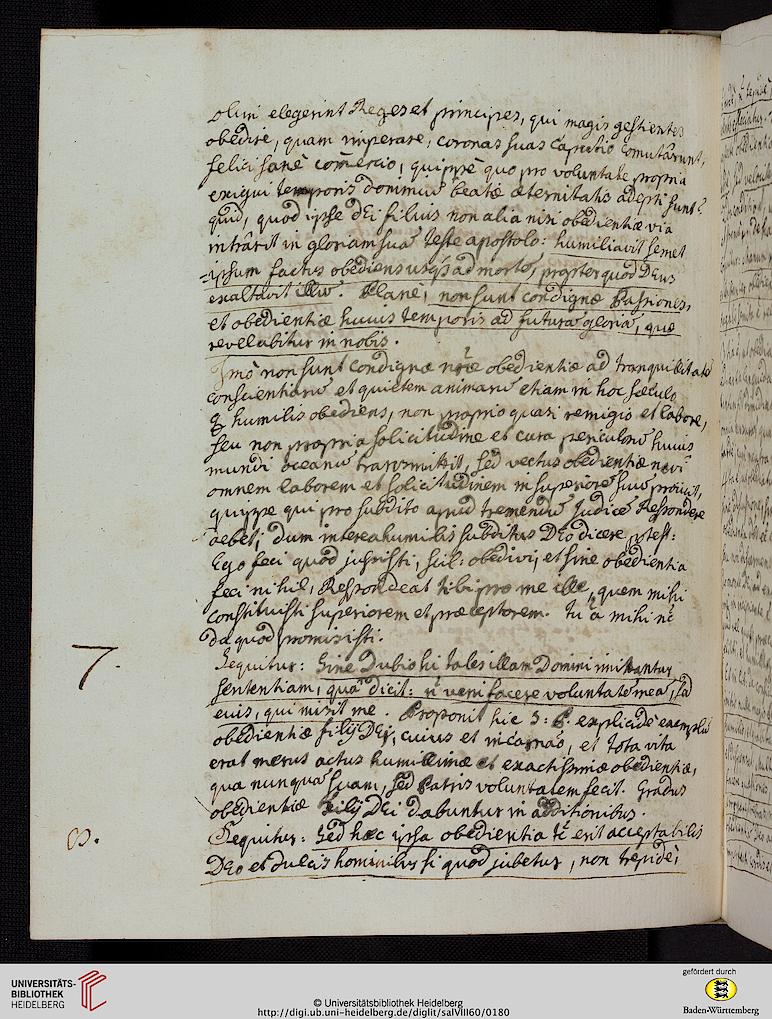 olim elegerint Reges et principes, qui magis gestientes
obedire, quam imperare, coronas suas caputio comutârunt,
felici sanè comercio, quippè quo pro voluntate propria
exigui temporis dominiū beatæ æternitatis adepti sunt?
quid, quod ipse dei filius non alia nisi obedientiæ via
intrârit in gloriam suā teste apostolo: humiliavit semet
-ipsum factus obediens usq3 ad mortē, propter quod Deus
exaltavit illū. Plane, non sunt condignæ passiones,
et obedientiæ huius temporis ad futurā gloriā, quæ
revelabitur in nobis.
Imò non sunt condignæ nr̄æ obedientiæ ad tranquilitatē
conscientiarū et quietem animarū etiam in hoc sæculo
humilis obediens, non proprio quasi remigio et labore,
seu non propria solicitudine et cura periculosū huius
mundi oceanū transmittit, sed vectus obedientiæ navi
omnem laborem et solicitudinem in superiorē suū proiicit,
quippe qui pro subdito apud tremendū Judicē Respondere
debet, dum interea humilis subditus Deo dicere potest:
Ego feci quod jussisti, scil: obedivi, et sine obedientia
feci nihil, Respondeat tibi pro me ille, quem mihi
constituisti superiorem et præceptorem. tu ā mihi nc̄
da quod promisisti.
7.
Sequitur: Sine dubio hi tales illam Domini imitantur
sententiam, quā dicit: n̄ veni facere voluntatē meā, sed
eius, qui misit me. Proponit hic S: P. explicidè exemplū
obedientiæ filij Dei, cuius et incarnāo, et tota vita
erat merus actus humillimæ et exactissimæ obedientiæ,
qua nunquā suam, sed Patris voluntatem fecit. Gradus
obedientiæ filij Dei dabuntur in additionibus.
8.
Sequitur: Sed hæc ipsa obedientia tc̄ erit acceptabilis
Deo et dulcis hominibus si quod jubetur, non trepidè,
UNIVERSITÄTS-
BIBLIOTHEK
HEIDELBERG
© Universitätsbibliothek Heidelberg
http://digi.ub.uni-heidelberg.de/diglit/salVIII60/0180
gefördert durch
Baden-Württemberg